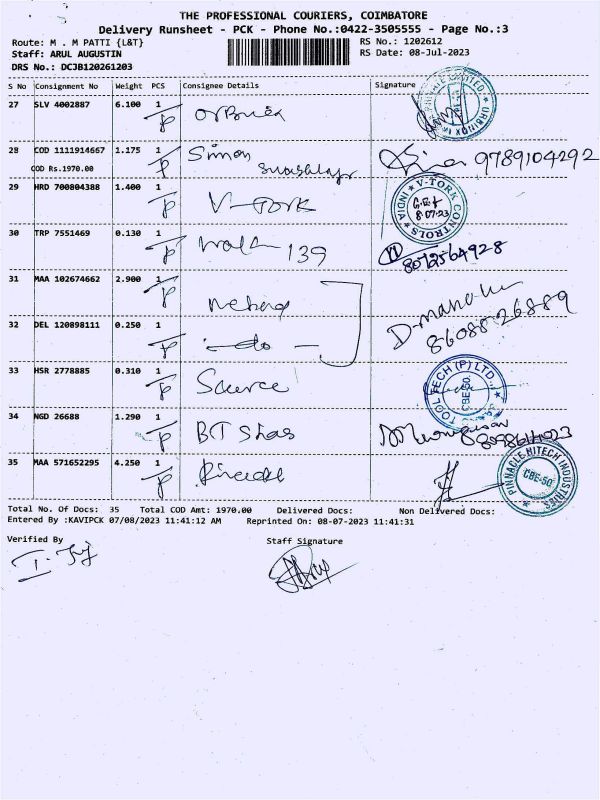 THE PROFESSIONAL COURIERS, COIMBATORE
Delivery Runsheet - PCK - Phone No.:0422-3505555 - Page No.:3
Route: M . M PATTI {L&T}
RS No.: 1202612
Staff: ARUL AUGUSTIN
RS Date: 08-Jul-2023
DRS No.: DCJB120261203
S No Consignment No Weight PCS Consignee Details Signature
27 SLV 4002887 6.100 1
P
28 COD 1111914667 1.175 1 Simon
COD Rs.1970.00 P 9789104292
29 HRD 700804388 1.400 1
P V-TORK
V-TORK CONTROLS INDIA
8.07.23
30 TRP 7551469 0.130 1
P 139 8072564928
31 MAA 102674662 2.900 1
P
32 DEL 120898111 0.250 1
P -do- 8608826889
33 HSR 2778885 0.310 1
P Source
TOOL TECH (P) LTD., CBE-50.
34 NGD 26688 1.290 1
P BT
35 MAA 571652295 4.250 1
P
PINNACLE HITECH INDUSTRIES CBE-50.
Total No. Of Docs: 35 Total COD Amt: 1970.00 Delivered Docs: Non Delivered Docs:
Entered By :KAVIPCK 07/08/2023 11:41:12 AM Reprinted On: 08-07-2023 11:41:31
Verified By Staff Signature